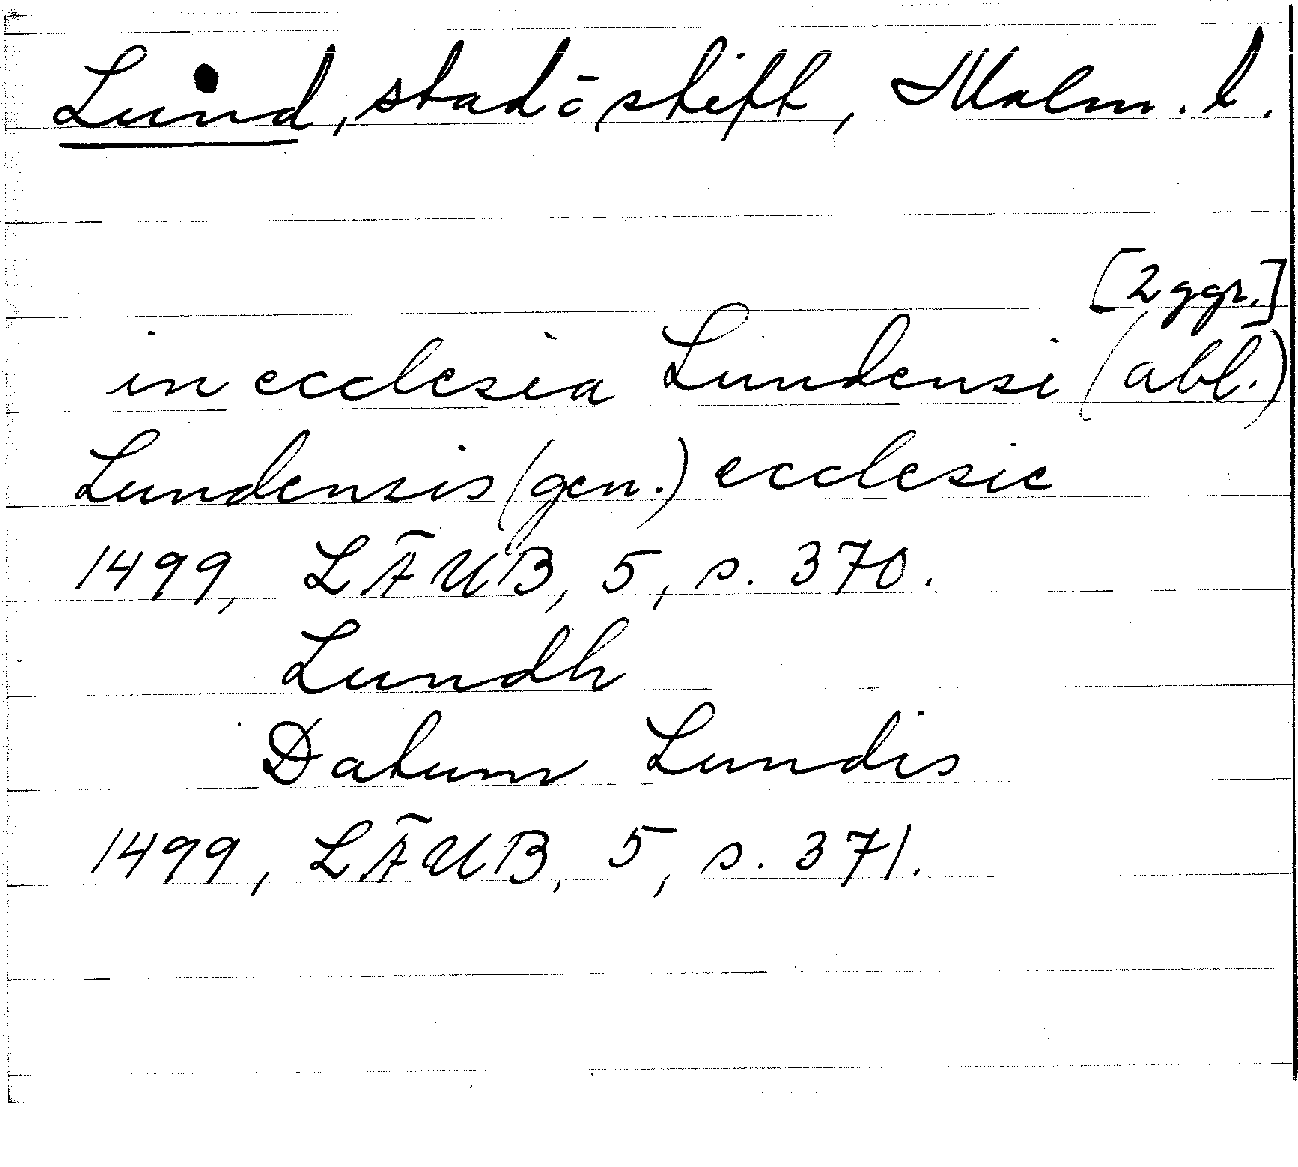 Lund, stad o stift, Malm. l.
[2 ggr.]
in ecclesia Lundensi (abl.)
Lundensis (gen.) ecclesie
1499, LÄUB, 5, s. 370.
Lundh
Datum Lundis
1499, LÄUB, 5, s. 371.